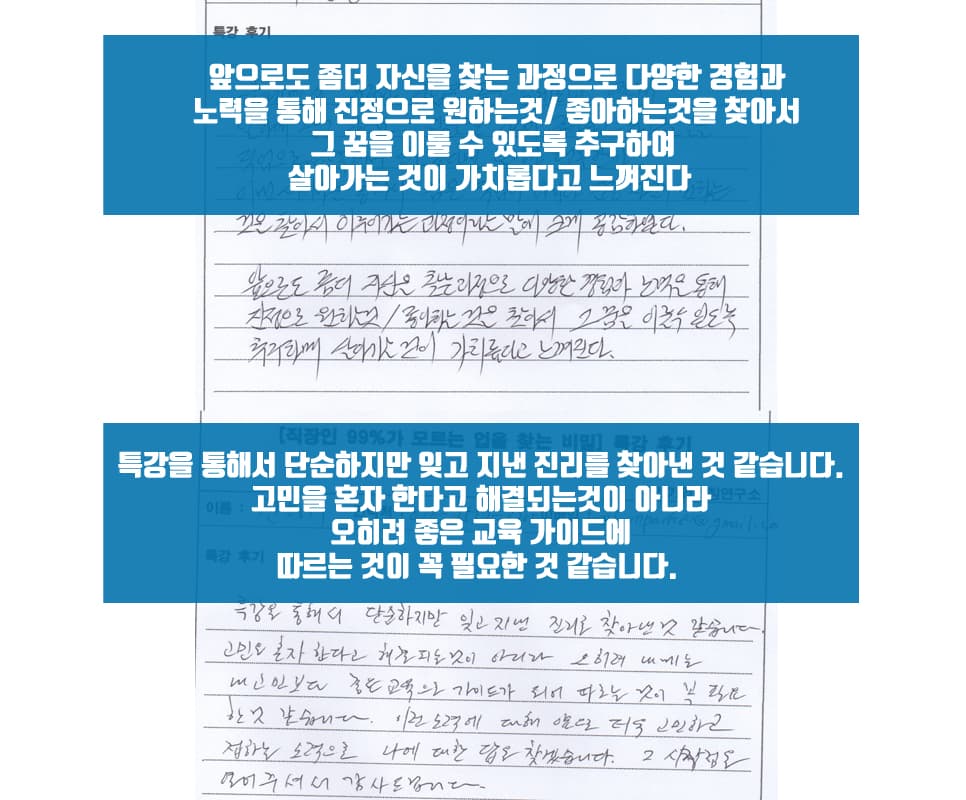 특강 후기
앞으로도 좀더 자신을 찾는 과정으로 다양한 경험과
노력을 통해 진정으로 원하는것/ 좋아하는것을 찾아서
그 꿈을 이룰 수 있도록 추구하여
살아가는 것이 가치롭다고 느껴진다
것은 찾아서 이루어가는 과정이라는 말에 크게 공감하였다.
앞으로도 좀더 자신을 찾는과정으로 다양한 경험과 노력을 통해
진정으로 원하는것/좋아하는 것을 찾아서 그 꿈을 이룰수 있도록
추구하며 살아가는 것이 가치롭다고 느껴진다.
[직장인 99%가 모르는 업을 찾는 비밀] 특강 후기
특강을 통해서 단순하지만 잊고 지낸 진리를 찾아낸 것 같습니다.
고민을 혼자 한다고 해결되는것이 아니라
오히려 좋은 교육 가이드에
따르는 것이 꼭 필요한 것 같습니다.
이름 :
연구소
특강 후기
특강을 통해서 단순하지만 잊고 지낸 진리를 찾아낸 것 같습니다.
고민을 혼자 한다고 해결되는것이 아니라 오히려 내게는
내 고민보다 좋은 교육으로 가이드가 되어 따르는 것이 꼭 필요
한 것 같습니다. 이런 노력에 대해 앞으로 더욱 고민하고
접하는 노력으로 나에 대한 답을 찾겠습니다. 그 시작점을
열어주셔서 감사드립니다.